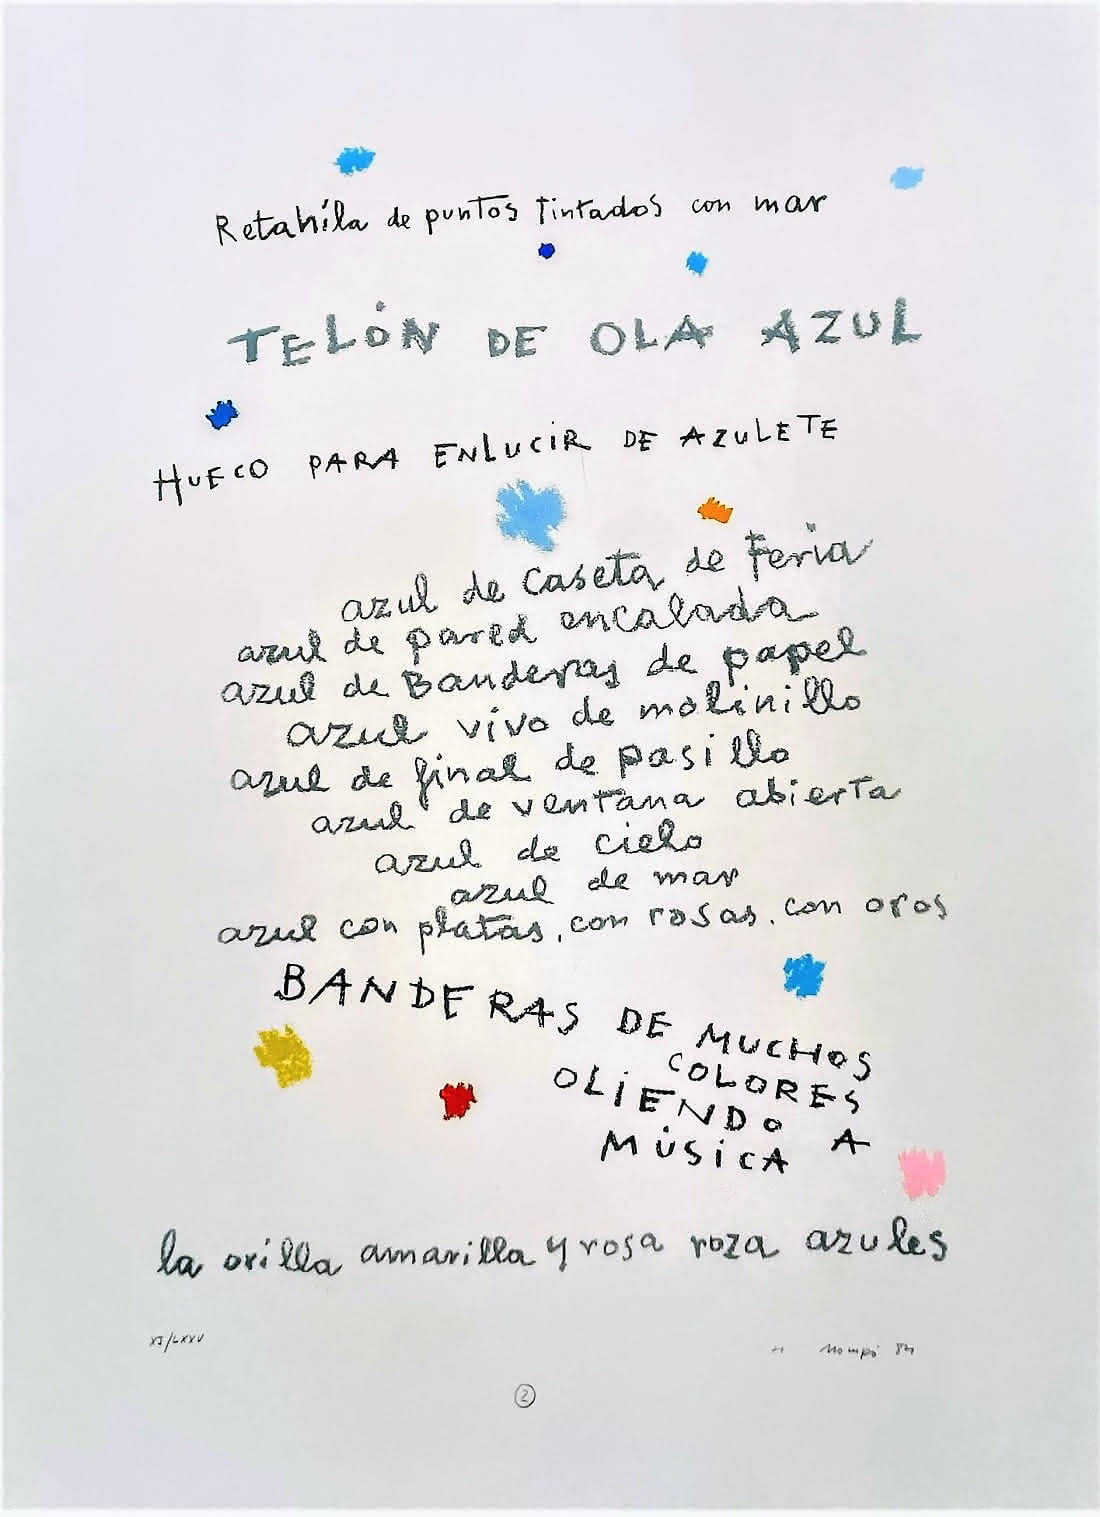 Retahíla de puntos tintados con mar
TELÓN DE OLA AZUL
HUECO PARA ENLUCIR DE AZULETE
azul de caseta de Feria
azul de pared encalada
azul de Banderas de papel
azul vivo de molinillo
azul de final de pasillo
azul de ventana abierta
azul de cielo
azul de mar
azul con platas, con rosas, con oros
BANDERAS DE MUCHOS
COLORES
OLIENDO A
MÚSICA
la orilla amarilla y rosa roza azules
XI/LXXV
2